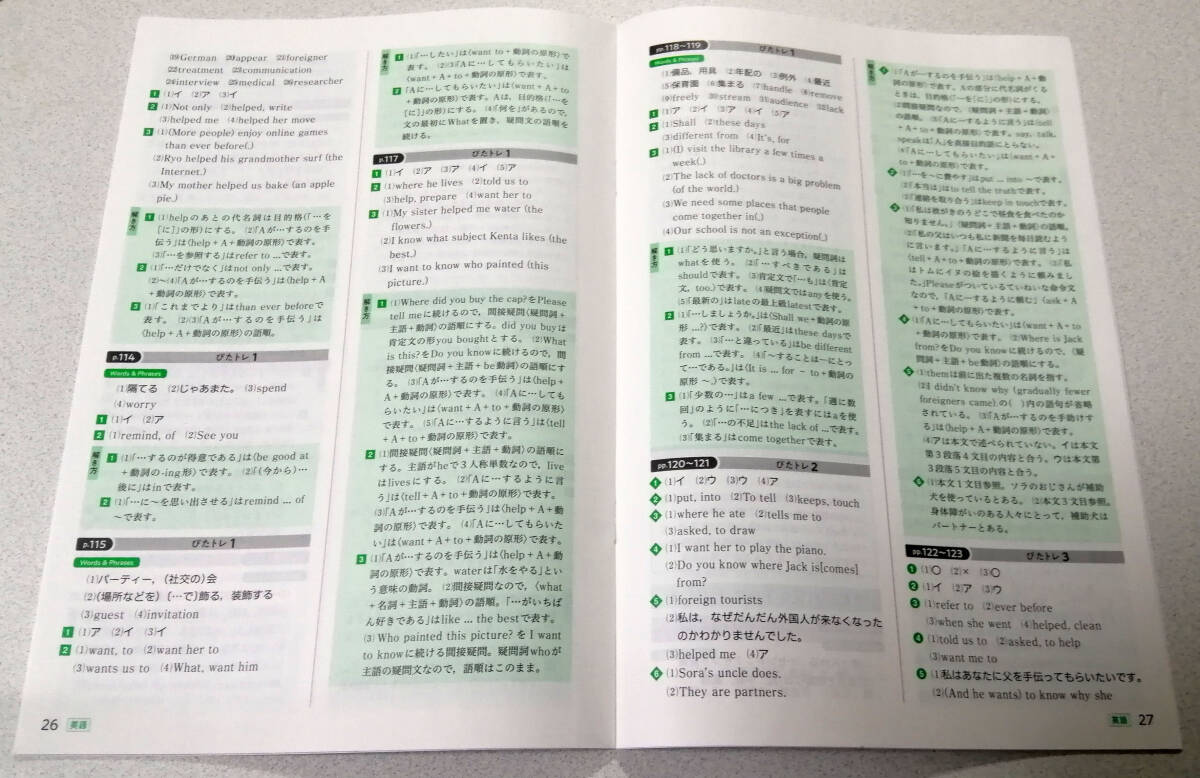 ⑲German ⑳appear ㉑foreigner
㉒treatment ㉓communication
㉔interview ㉕medical ㉖researcher
1 (1)イ (2)ア (3)イ
2 (1)Not only (2)helped, write
(3)helped me (4)helped her move
3 (1)(More people) enjoy online games
than ever before(.)
(2)Ryo helped his grandmother surf (the
Internet.)
(3)My mother helped us bake (an apple
pie.)
解き方
1 (1)helpのあとの代名詞は目的格(「…を
[に]」の形)にする。 (2)「Aが…するのを手
伝う」は〈help+A+動詞の原形〉で表す。
(3)「…を参照する」はrefer to ...で表す。
2 (1)「…だけでなく」はnot only ...で表す。
(2)〜(4)「Aが…するのを手伝う」は〈help+A
+動詞の原形〉で表す。
3 (1)「これまでより」はthan ever beforeで
表す。 (2)(3)「Aが…するのを手伝う」は
〈help+A+動詞の原形〉の語順。
p.114 ぴたトレ1
Words & Phrases
(1)隔てる (2)じゃあまた。 (3)spend
(4)worry
1 (1)イ (2)ア
2 (1)remind, of (2)See you
解き方
1 (1)「…するのが得意である」は〈be good at
+動詞の-ing形〉で表す。 (2)「(今から)…
後に」はinで表す。
2 (1)「…に〜を思い出させる」はremind ... of
〜で表す。
p.115 ぴたトレ1
Words & Phrases
(1)パーティー,(社交の)会
(2)(場所などを)(…で)飾る,装飾する
(3)guest (4)invitation
1 (1)ア (2)イ (3)イ
2 (1)want, to (2)want her to
(3)wants us to (4)What, want him
解き方
1 (1)「…したい」は〈want to+動詞の原形〉で
表す。 (2)(3)「Aに…してもらいたい」は
〈want+A+to+動詞の原形〉で表す。
2 「Aに…してもらいたい」は〈want+A+to
+動詞の原形〉で表す。Aは,目的格(「…を
[に]」の形)にする。 (4)「何を」があるので,
文の最初にWhatを置き,疑問文の語順を
続ける。
p.117 ぴたトレ1
1 (1)イ (2)ア (3)ア (4)イ (5)ア
2 (1)where he lives (2)told us to
(3)help, prepare (4)want her to
3 (1)My sister helped me water (the
flowers.)
(2)I know what subject Kenta likes (the
best.)
(3)I want to know who painted (this
picture.)
解き方
1 (1)Where did you buy the cap?をPlease
tell meに続けるので,間接疑問〈疑問詞+
主語+動詞〉の語順にする。did you buyは
肯定文の形you boughtとする。 (2)What
is this?をDo you knowに続けるので,間
接疑問〈疑問詞+主語+be動詞〉の語順にす
る。 (3)「Aが…するのを手伝う」は〈help+
A+動詞の原形〉で表す。 (4)「Aに…しても
らいたい」は〈want+A+to+動詞の原形〉
で表す。 (5)「Aに…するように言う」は〈tell
+A+to+動詞の原形〉で表す。
2 (1)間接疑問〈疑問詞+主語+動詞〉の語順に
する。主語がheで3人称単数なので,live
はlivesにする。 (2)「Aに…するように言
う」は〈tell+A+to+動詞の原形〉で表す。
(3)「Aが…するのを手伝う」は〈help+A+
動詞の原形〉で表す。 (4)「Aに…してもらいた
い」は〈want+A+to+動詞の原形〉で表す。
3 (1)「Aが…するのを手伝う」は〈help+A+動
詞の原形〉で表す。waterは「水をやる」とい
う意味の動詞。 (2)間接疑問なので,〈what
+名詞+主語+動詞〉の語順。「…がいちば
ん好きである」はlike ... the bestで表す。
(3) Who painted this picture? を I want
to knowに続ける間接疑問。疑問詞whoが
主語の疑問文なので,語順はこのまま。
26 英語
pp.118〜119 ぴたトレ1
Words & Phrases
(1)備品,用具 (2)年配の (3)例外 (4)最近
(5)保育園 (6)集まる (7)handle (8)remove
(9)freely (10)stream (11)audience (12)lack
1 (1)ア (2)イ (3)ア (4)イ (5)ア
2 (1)Shall (2)these days
(3)different from (4)It's, for
3 (1)(I) visit the library a few times a
week(.)
(2)The lack of doctors is a big problem
(of the world.)
(3)We need some places that people
come together in(.)
(4)Our school is not an exception(.)
解き方
1 (1)「どう思いますか。」と言う場合,疑問詞は
whatを使う。 (2)「…すべきである」は
shouldで表す。 (3)肯定文で「…も」は〈肯定
文, too.〉で表す。 (4)疑問文ではanyを使う。
(5)「最新の」はlateの最上級latestで表す。
2 (1)「…しましょうか。」は〈Shall we+動詞の原
形 ...?〉で表す。 (2)「最近」はthese daysで
表す。 (3)「…と違っている」はbe different
from ...で表す。 (4)「〜することは…にとっ
て…である。」は〈It is ... for − to+動詞の
原形 〜〉で表す。
3 (1)「少数の…」はa few ...で表す。「週に数
回」のように「…につき」を表すにはaを使
う。 (2)「…の不足」はthe lack of ...で表す。
(3)「集まる」はcome togetherで表す。
pp.120〜121 ぴたトレ2
1 (1)イ (2)ウ (3)ウ (4)ア
2 (1)put, into (2)To tell (3)keeps, touch
3 (1)where he ate (2)tells me to
(3)asked, to draw
4 (1)I want her to play the piano.
(2)Do you know where Jack is[comes]
from?
5 (1)foreign tourists
(2)私は,なぜだんだん外国人が来なくなった
のかわかりませんでした。
(3)helped me (4)ア
6 (1)Sora's uncle does.
(2)They are partners.
解き方
1 (1)「Aが…するのを手伝う」は〈help+A+動
詞の原形〉で表す。Aの部分に代名詞がくる
ときは,目的格(「…を[に]」の形)にする。
(2)間接疑問なので,〈疑問詞+主語+動詞〉
の語順。 (3)「Aに…するように言う」は〈tell
+A+to+動詞の原形〉で表す。say, talk,
speakは「人」を直接目的語にとらない。
(4)「Aに…してもらいたい」は〈want+A+
to+動詞の原形〉で表す。
2 (1)「…を〜に費やす」はput ... into 〜で表す。
(2)「本当は」はto tell the truthで表す。
(3)「連絡を取り合う」はkeep in touchで表す。
3 (1)「私は彼がきのうどこで昼食を食べたのか
知りません。」〈疑問詞+主語+動詞〉の語順。
(2)「私の父はいつも私に新聞を毎日読むよう
に言います。」「Aに…するように言う」は
〈tell+A+to+動詞の原形〉で表す。 (3)「私
はトムにイヌの絵を描くように頼みまし
た。」Pleaseがついているていねいな命令文
なので,「Aに…するように頼む」〈ask+A
+to+動詞の原形〉で表す。
4 (1)「Aに…してもらいたい」は〈want+A+to
+動詞の原形〉で表す。 (2)Where is Jack
from?をDo you knowに続けるので,〈疑
問詞+主語+be動詞〉の語順にする。
5 (1)themは前に出た複数の名詞を指す。
(2)I didn't know why (gradually fewer
foreigners came).の( )内の語句が省略
されている。 (3)「Aが…するのを手助けす
る」は〈help+A+動詞の原形〉で表す。
(4)アは本文で述べられていない。イは本文
第3段落4文目の内容と合う。ウは本文第
3段落5文目の内容と合う。
6 (1)本文1文目参照。ソラのおじさんが補助
犬を使っているとある。 (2)本文3文目参照。
身体障がいのある人々にとって,補助犬は
パートナーとある。
pp.122〜123 ぴたトレ3
1 (1)○ (2)× (3)○
2 (1)イ (2)ア (3)ウ
3 (1)refer to (2)ever before
(3)when she went (4)helped, clean
4 (1)told us to (2)asked, to help
(3)want me to
5 (1)私はあなたに父を手伝ってもらいたいです。
(2)(And he wants) to know why she
英語 27